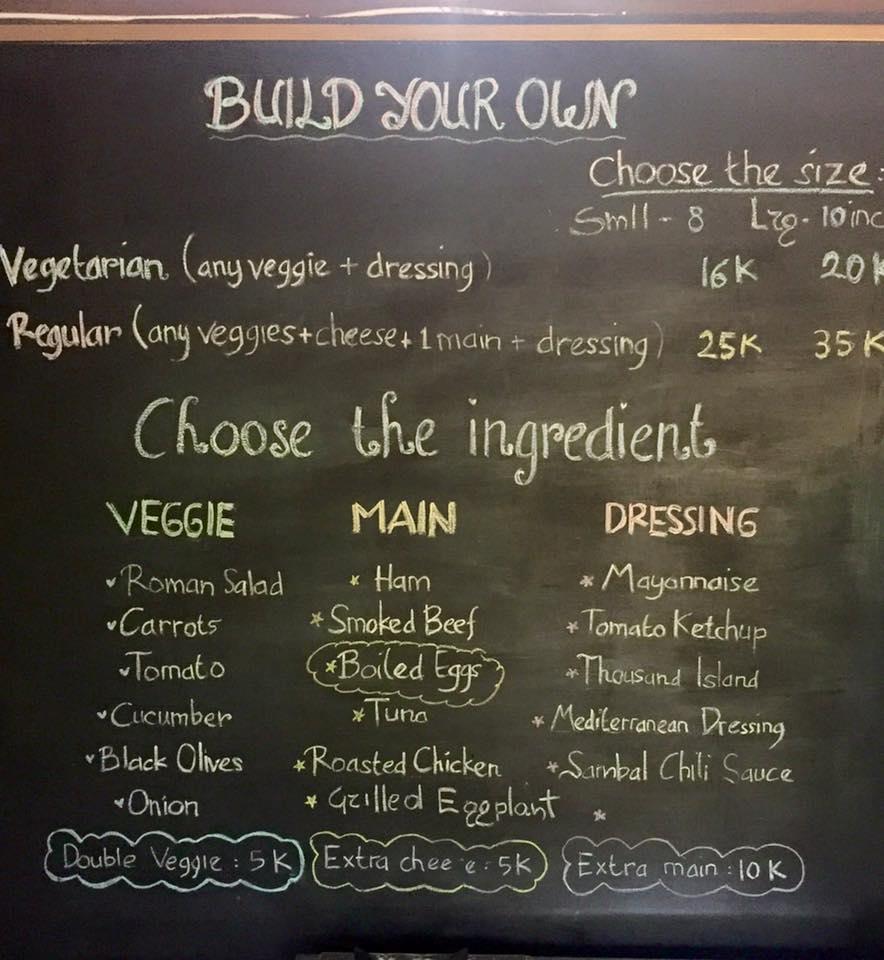 BUILD YOUR OWN
Choose the size:
Smll - 8 Lrg - 10 inc
Vegetarian (any veggie + dressing) 16K 20K
Regular (any veggies+cheese+1 main + dressing) 25K 35K
Choose the ingredient
VEGGIE MAIN DRESSING
Roman Salad * Ham * Mayonnaise
Carrots * Smoked Beef * Tomato Ketchup
Tomato * Boiled Eggs * Thousand Island
Cucumber * Tuna * Mediterranean Dressing
Black Olives * Roasted Chicken * Sambal Chili Sauce
Onion * Grilled Eggplant *
Double Veggie : 5K Extra chee e : 5K Extra main : 10K